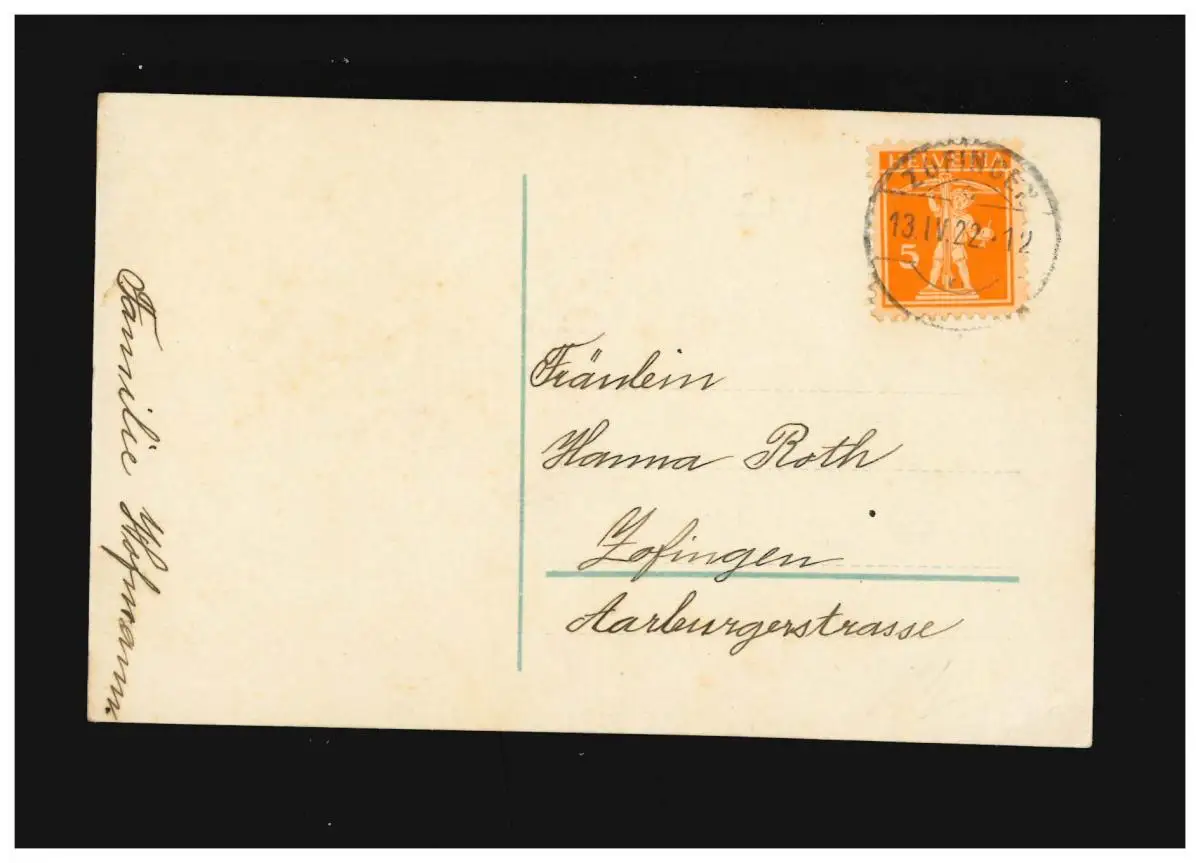 HELVETIA
5
ZOFINGEN
13.IV.22-12
Fräulein
Hanna Roth
Zofingen
Aarburgerstrasse
Familie Hofmann.